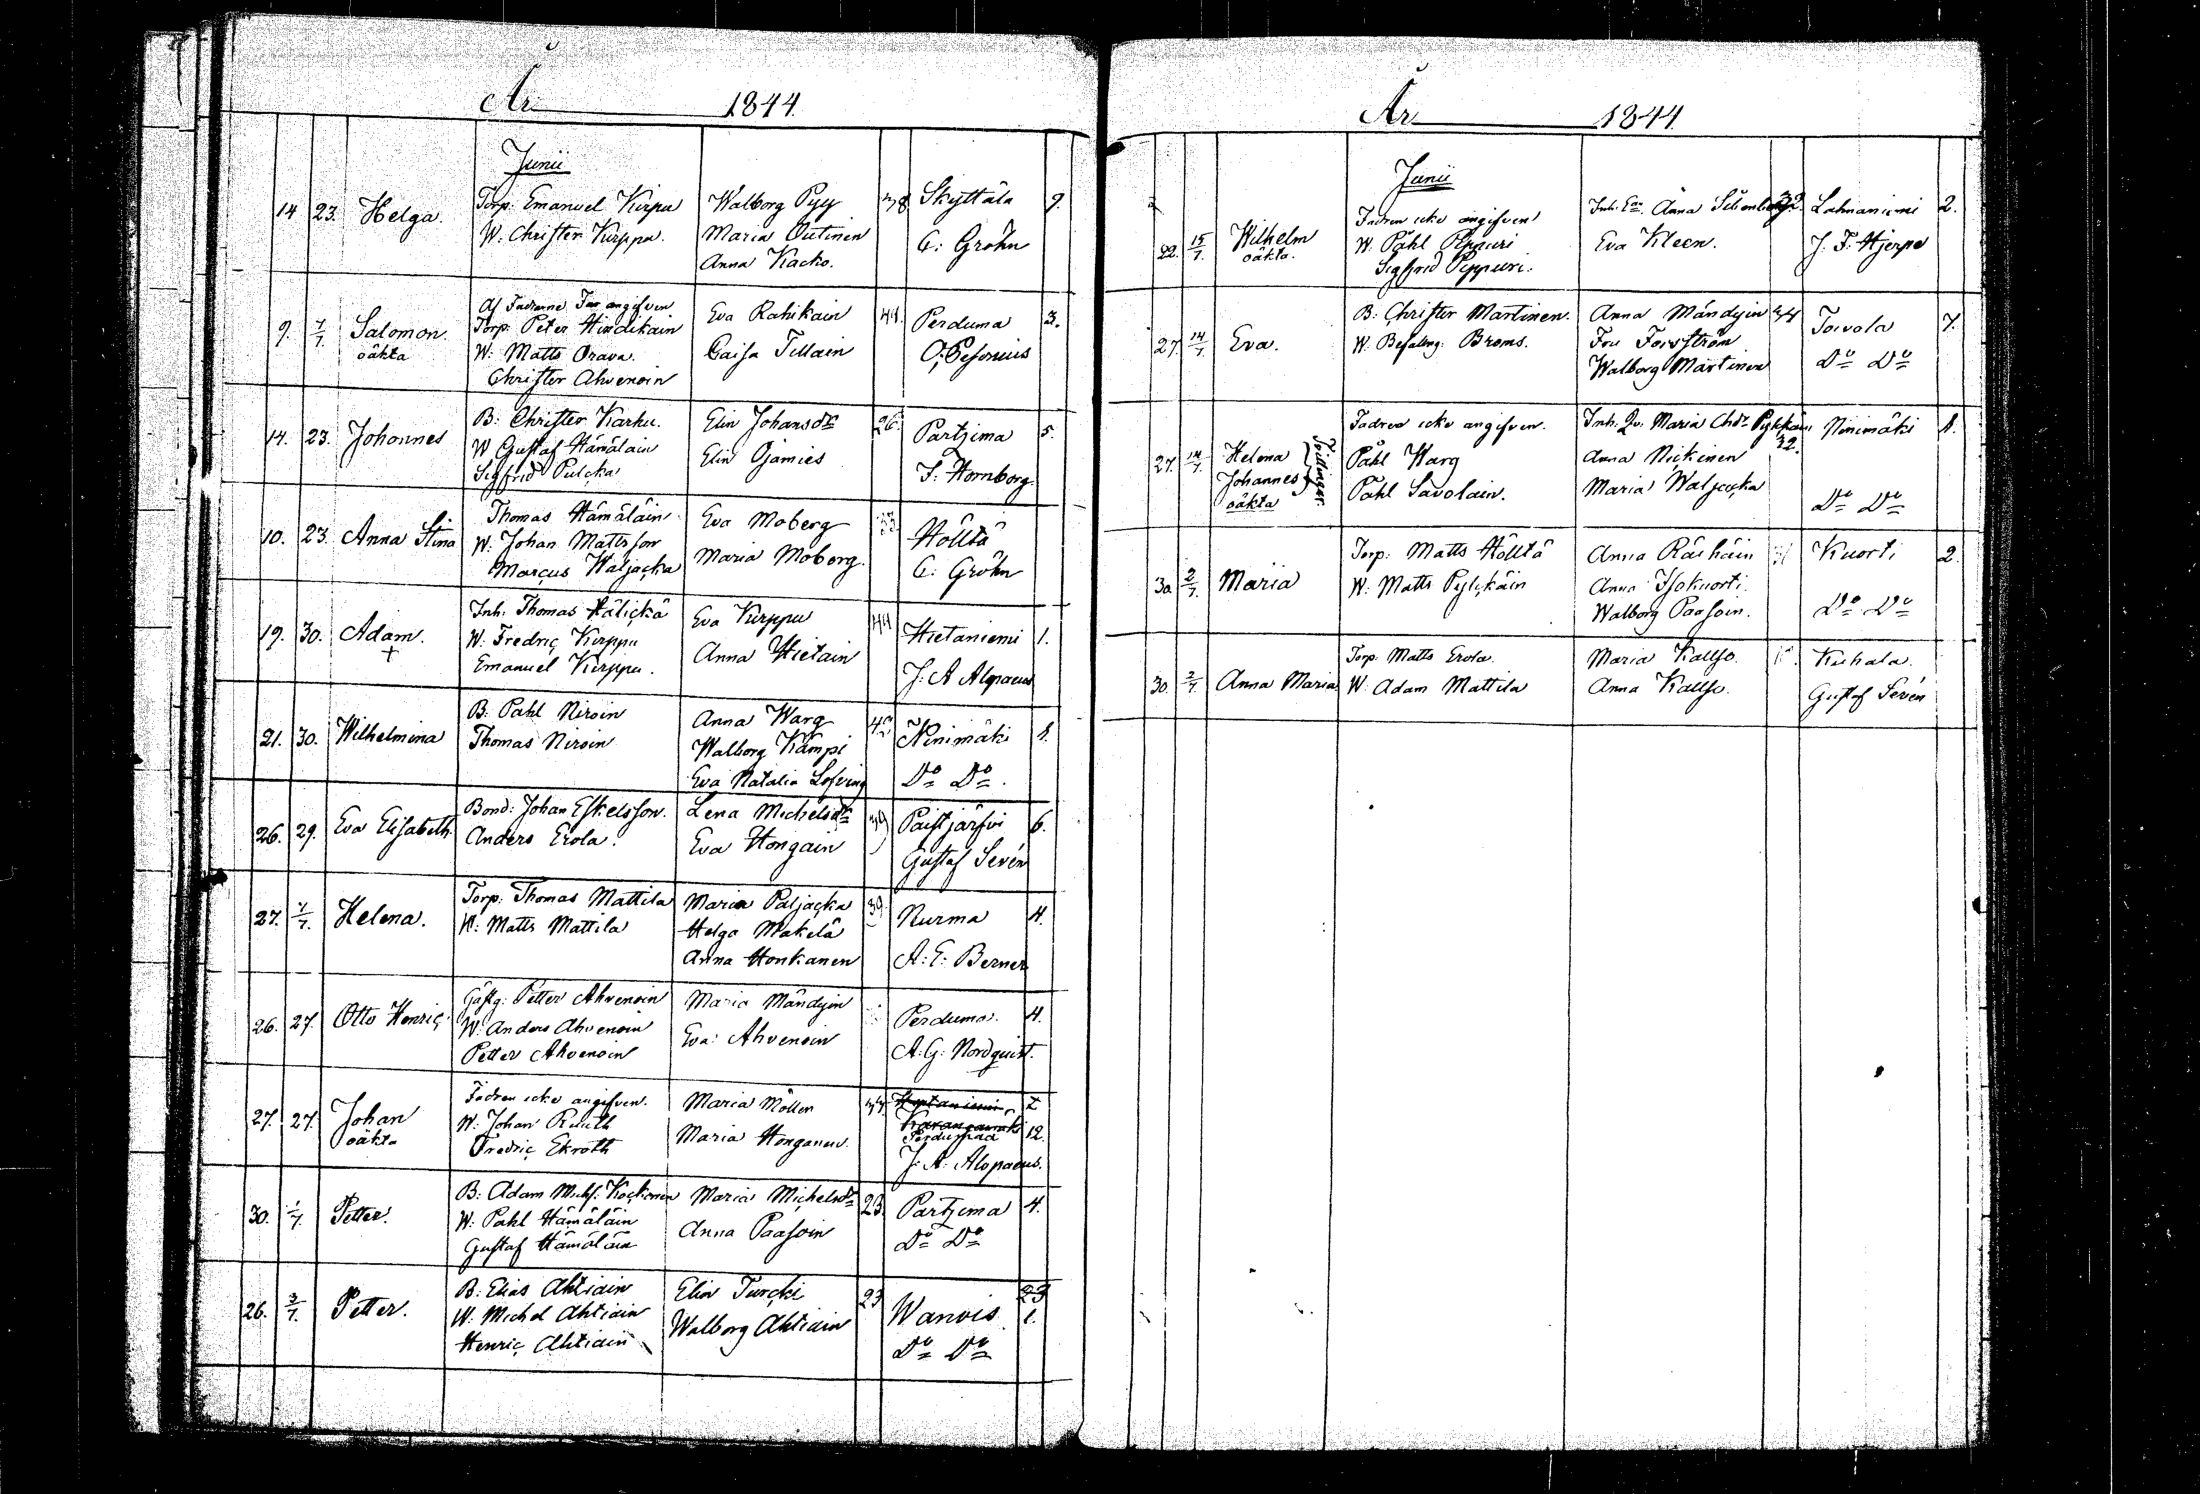 År 1844.
Junii
14 23. Helga. Torp: Emanuel Kirpu Walborg Pyy 38 Skyttälä 9.
W. Christer Kirppu. Maria Outinen C: Gröhn
Anna Kacko.
Af Fadrene Far angifven
9. 7/7. Salomon Torp: Peter Hindikain Eva Rahikain 44. Perduma 3.
oäkta W: Matts Orava. Caisa Tillain O: Pesonius
Christer Ahvenoin
14. 23. Johannes B: Christer Karhu. Elin Johansdr 26. Partzima 5.
W Gustaf Hämäläin Elin Ojamies F: Hornborg
Sigfrid Pulcka
10. 23. Anna Stina Thomas Hämäläin Eva Moberg Hölltä
W. Johan Mattsson Maria Moberg. C: Gröhn
Marcus Waljacka
19. 30. Adam. Inh: Thomas Hälickä Eva Kirppu 44 Hietaniemi 1.
W. Fredric Kirppu Anna Hietain J: A Alopaeus
Emanuel Kirppu.
21. 30. Wilhelmina B: Pahl Niroin Anna Warg Ninimäki 8.
Thomas Niroin Walborg Kämpi Do Do.
Eva Natalia Lofving
26. 29. Eva Elisabeth Bond: Johan Eskelsson. Lena Michelsdr 39 Paistjärfvi 6.
Anders Erola. Eva Hongain Gustaf Sevén
27. 7/7. Helena. Torp: Thomas Mattila Maria Paljacka 39 Nurma 4.
W: Matts Mattila Helga Makelä A: E: Berner
Anna Honkanen
26. 27. Otto Henric Gästg: Petter Ahvenoin Maria Mändyin Perduma. 4.
W: Anders Ahvenoin Eva Ahvenoin A: G: Nordquist.
Petter Ahvenoin
27. 27. Johan Fadren icke angifven. Maria Möller Hietaniemi
oäkta W. Johan Ruuth Maria Honganen. 12.
Fredric Ekroth J: A: Alopaeus.
30. 1/7. Petter. B: Adam Michs: Kockonen Maria Michelsdr 23. Partzima 4.
W. Pahl Hämäläin Anna Paasoin Do Do
Gustaf Hämäläin
26. 3/7. Petter. B: Elias Ahtiain Elin Turcki 23 Wanois 23
W. Michel Ahtiain Walborg Ahtiain Do Do 1.
Henric Ahtiain
År 1844
Junii
22. 15/7. Wilhelm Fadren icke angifven Inh: Anna 32. Lahnaniemi 2.
oäkta. W. Påhl Pippuri Eva Kleen. J. F. Hjerpe
Sigfrid Pippuri.
27. 14/7. Eva. B: Christer Martinen. Anna Mändyin 34 Toivola 7.
W. Befalling: Broms. Fru Forsström Do Do
Walborg Martinen
27. 14/7. Helena Fadren icke angifven. Inh: Maria Chdr Pylkkäin Ninimäki 8.
Johannes Tvillingar. Påhl Warg Anna Nickinen 32.
oäkta Påhl Savolain. Maria Waljacka Do Do
30. 2/7. Maria Torp: Matts Hölltä Anna Räihäin Kuorti 2.
W. Matts Pylckäin Anna Isokuorti Do Do
Walborg Paasoin.
30. 2/7. Anna Maria Torp: Matts Erola. Maria Kallso. Kuhala.
W: Adam Mattila Anna Kallso. Gustaf Sevén